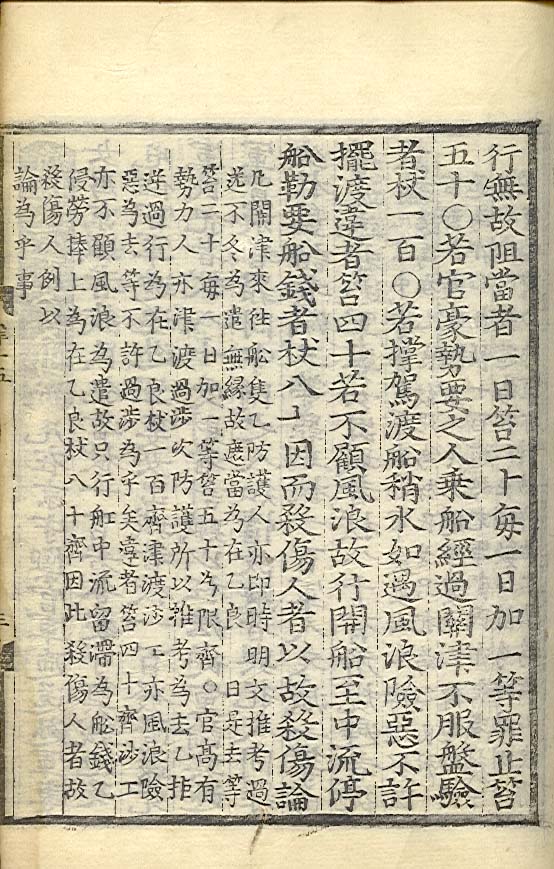 行無故阻當者一日笞二十每一日加一等罪止笞
五十○若官豪勢要之人乘船經過關津不服盤驗
者杖一百○若撑駕渡船稍水如遇風浪險惡不許
擺渡違者笞四十若不顧風浪故行開船至中流停
船勒要船錢者杖八十因而殺傷人者以故殺傷論
凡關津來徃舡隻乙防護人亦即時明文推考過
送不冬爲遣無緣故應當爲在乙良 日是去等
笞二十每一日加一等笞五十爲限齊○官高有
勢力人亦津渡過涉次防護所以推考爲去乙拒
逆過行爲在乙良杖一百齊津渡沙工亦風浪險
惡爲去等不許過涉爲乎矣違者笞四十齊沙工
亦不顧風浪爲遣故只行舡中流留滯爲舡錢乙
侵勞捧上爲在乙良杖八十齊因此殺傷人者故
殺傷人例以
論爲乎事
三